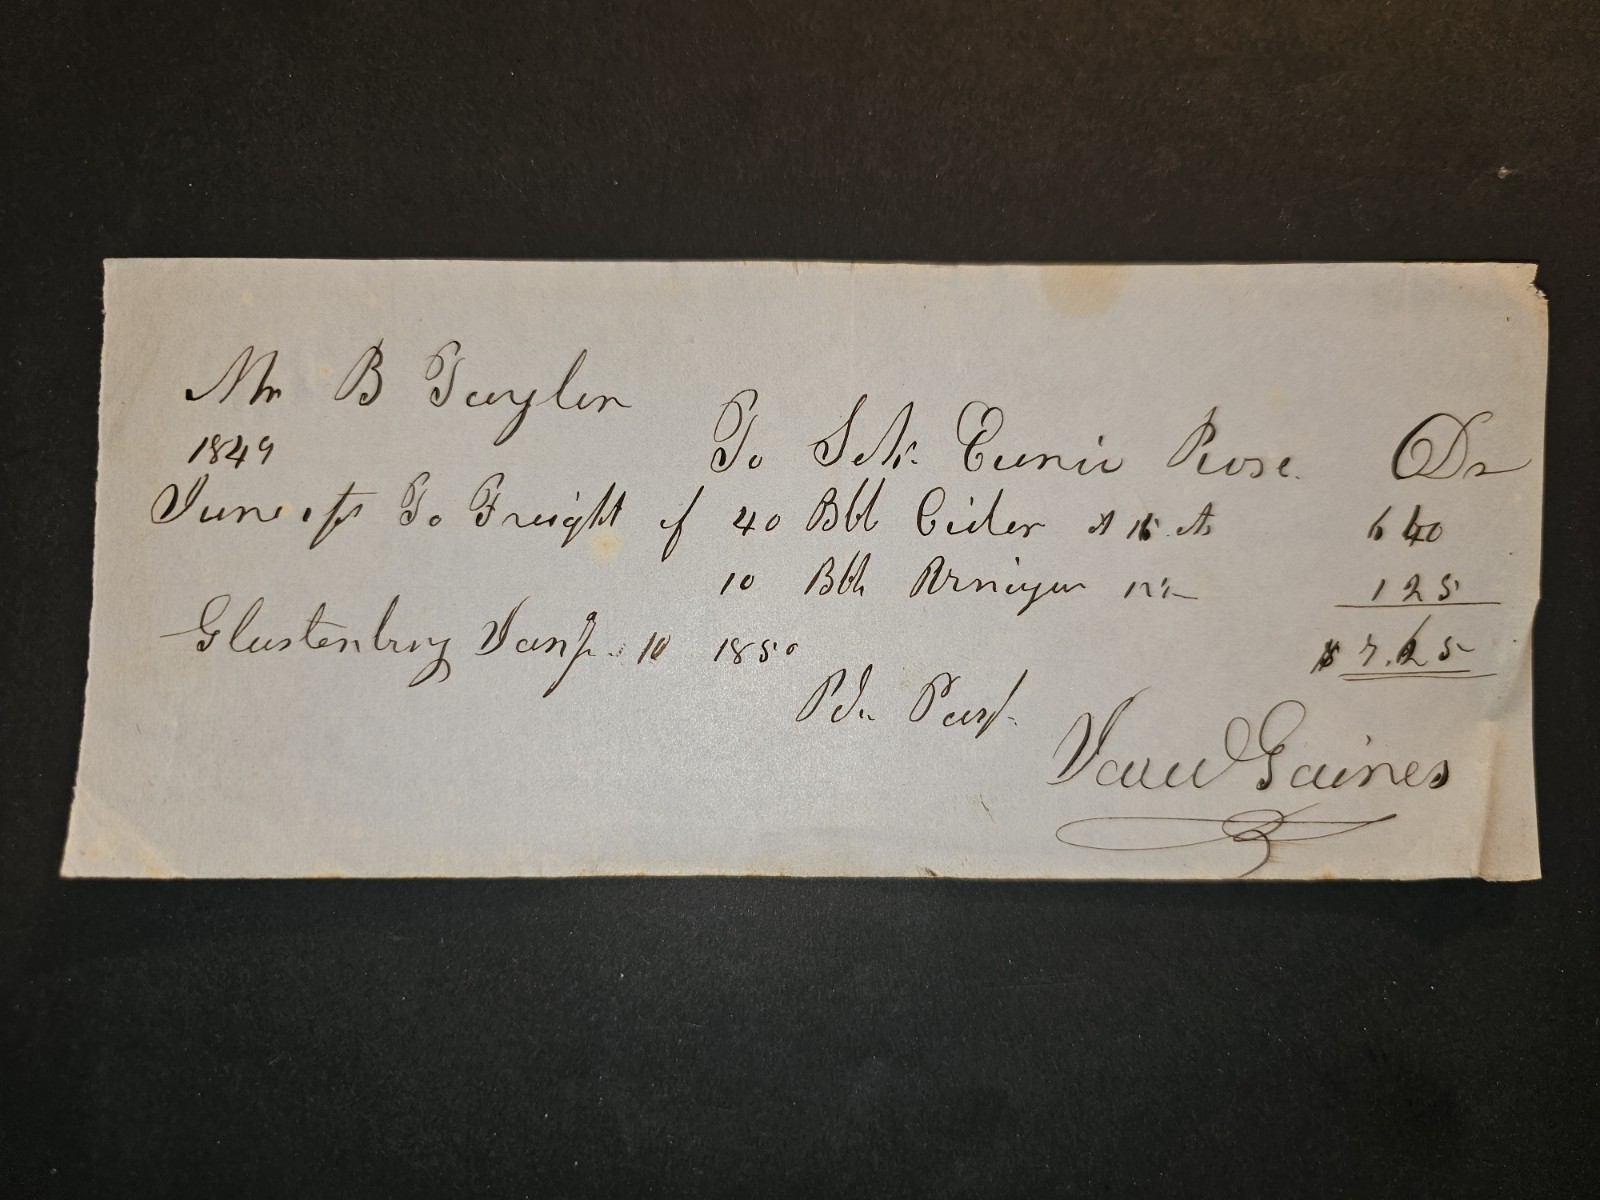 Mr B Taylor
1849 To Sch. Eunice Rose. Dr
June To Freight of 40 Bbl Cider at 16 cts 6 40
10 Bbls 12½ 1 25
Glastenbury Jany. 10 1850 $ 7.65
Recd. Payt.
Gaines